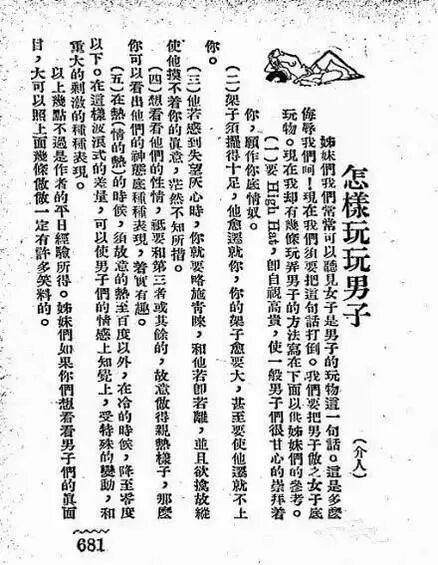 怎樣玩玩男子
(介人)
姊妹們我們常常可以聽見女子是男子的玩物這一句話。這是多麽
侮辱我們呵！現在我們須要把這句話打倒。我們要把男子做之女子底
玩物。現在我却有幾條玩弄男子的方法寫在下面以供姊妹們的參考。
(一)要High Hat，卽自視高貴，使一般男子們很甘心的崇拜着
你，願作你底情奴。
(二)架子須擺得十足，他愈遷就你，你的架子愈要大，甚至要使他遷就不上
你。
(三)他若感到失望灰心時，你就要略施靑睞，和他若卽若離，並且欲擒故縱
使他摸不着你的眞意，茫然不知所措。
(四)想看看他們的性情，祗要和第三者或其餘的，故意做得親熱樣子，那麽
你可以看出他們的神態底種種表現，着實有趣。
(五)在熱(情的熱)的時候，須故意的熱至百度以外，在冷的時候，降至零度
以下。在這樣波浪式的差量，可以使男子們的情感上知覺上，受特殊的變動，和
重大的剌激的種種表現。
以上幾點不過是作者的平日經驗所得。姊妹們如果你們想看看男子們的眞面
目，大可以照上面幾條做做一定有許多笑料的。
681